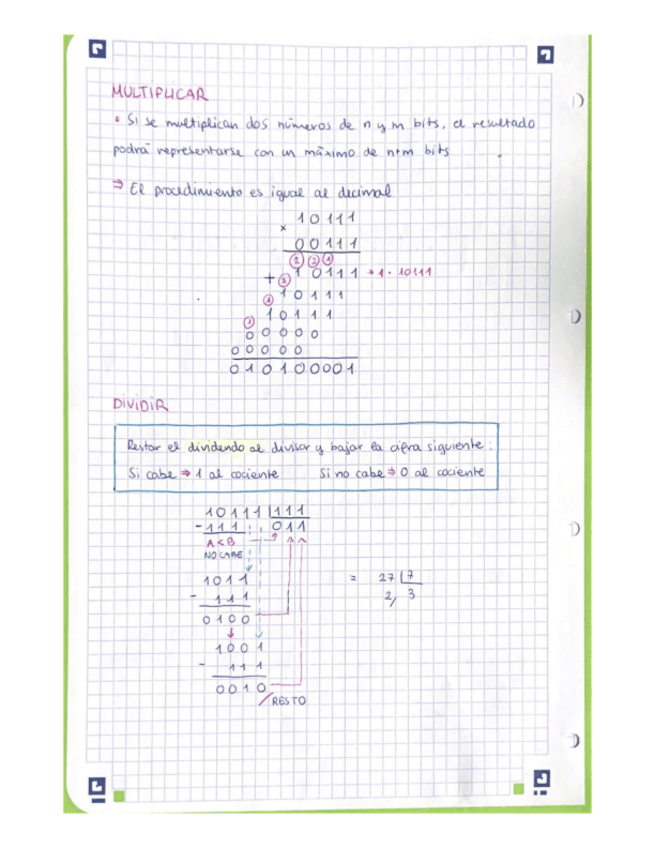 MULTIPLICAR
• Si se multiplican dos números de n y m bits, el resultado
podrá representarse con un máximo de n+m bits
⇒ El procedimiento es igual al decimal
10111
x
00111
2 2 1
+ 3 10111 → 1 · 10111
1 10111
10111
1
00000
00000
0101000001
DIVIDIR
Restar el dividendo al divisor y bajar la cifra siguiente:
Si cabe ⇒ 1 al cociente Si no cabe ⇒ 0 al cociente
10111 111
-111 011
A<B
NO CABE
1011 = 27 7
- 111 2, 3
0100
1001
- 111
0010
RESTO